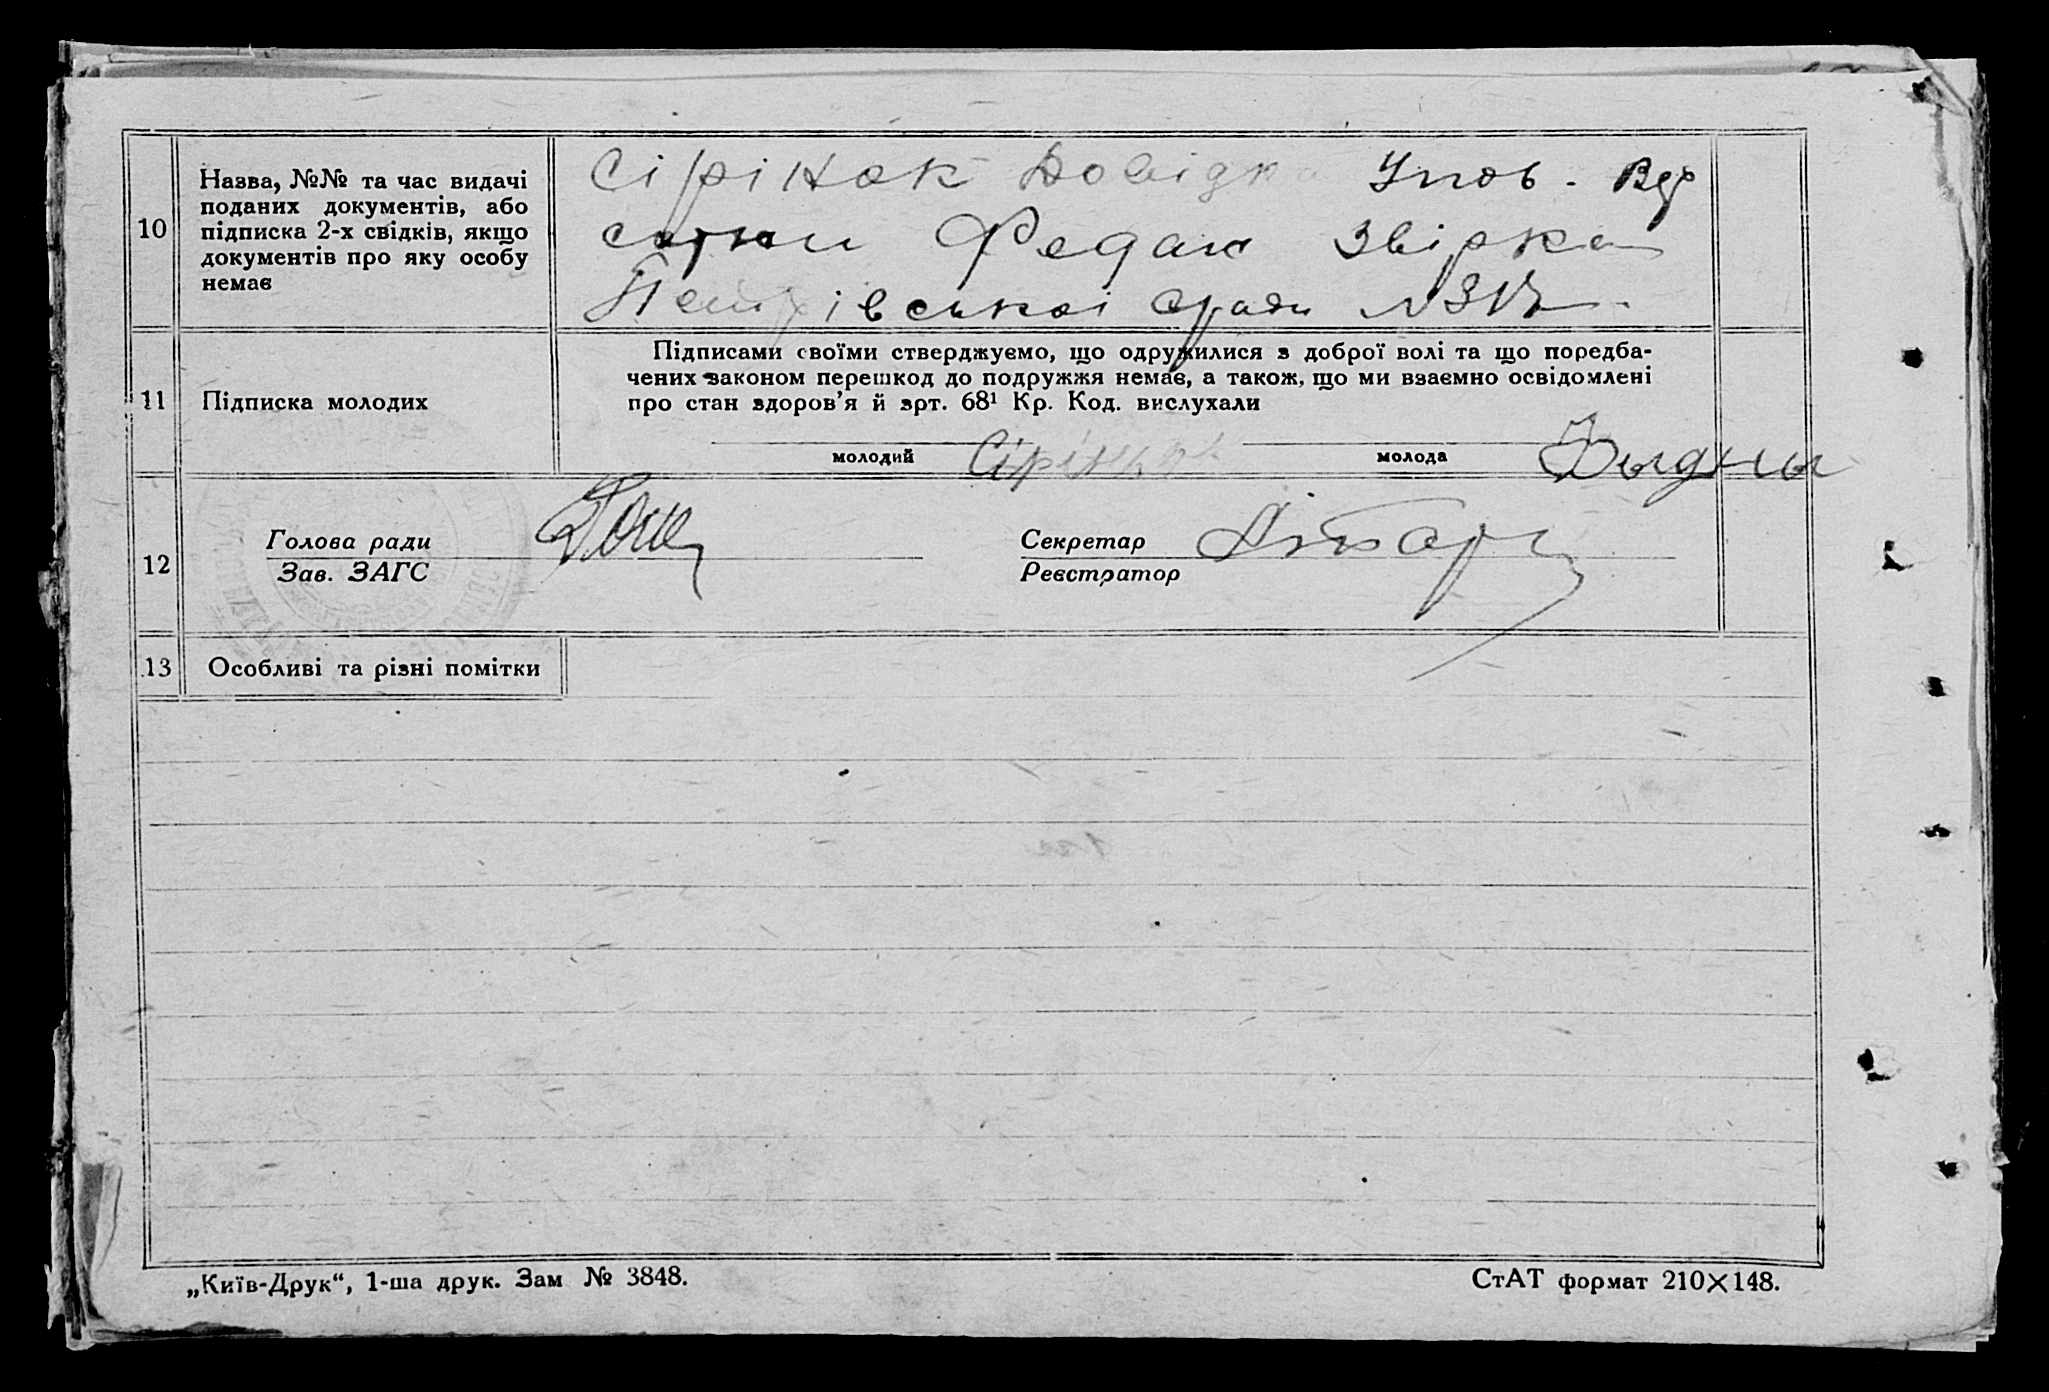 10
Назва, №№ та час видачі
поданих документів, або
підписка 2-х свідків, якщо
документів про яку особу
немає
Сірінок Довідка Упов.
Федак Звірка
Петрівської ради
11
Підписка молодих
Підписами своїми стверджуємо, що одружилися з доброї волі та що поредба-
чених законом перешкод до подружжя немає, а також, що ми взаємно освідомлені
про стан здоров’я й арт. 68¹ Кр. Код. вислухали
молодий
молода
12
Голова ради
Зав. ЗАГС
Секретар
Реєстратор
13
Особливі та різні помітки
„Київ-Друк“, 1-ша друк. Зам № 3848.
СтАТ формат 210×148.